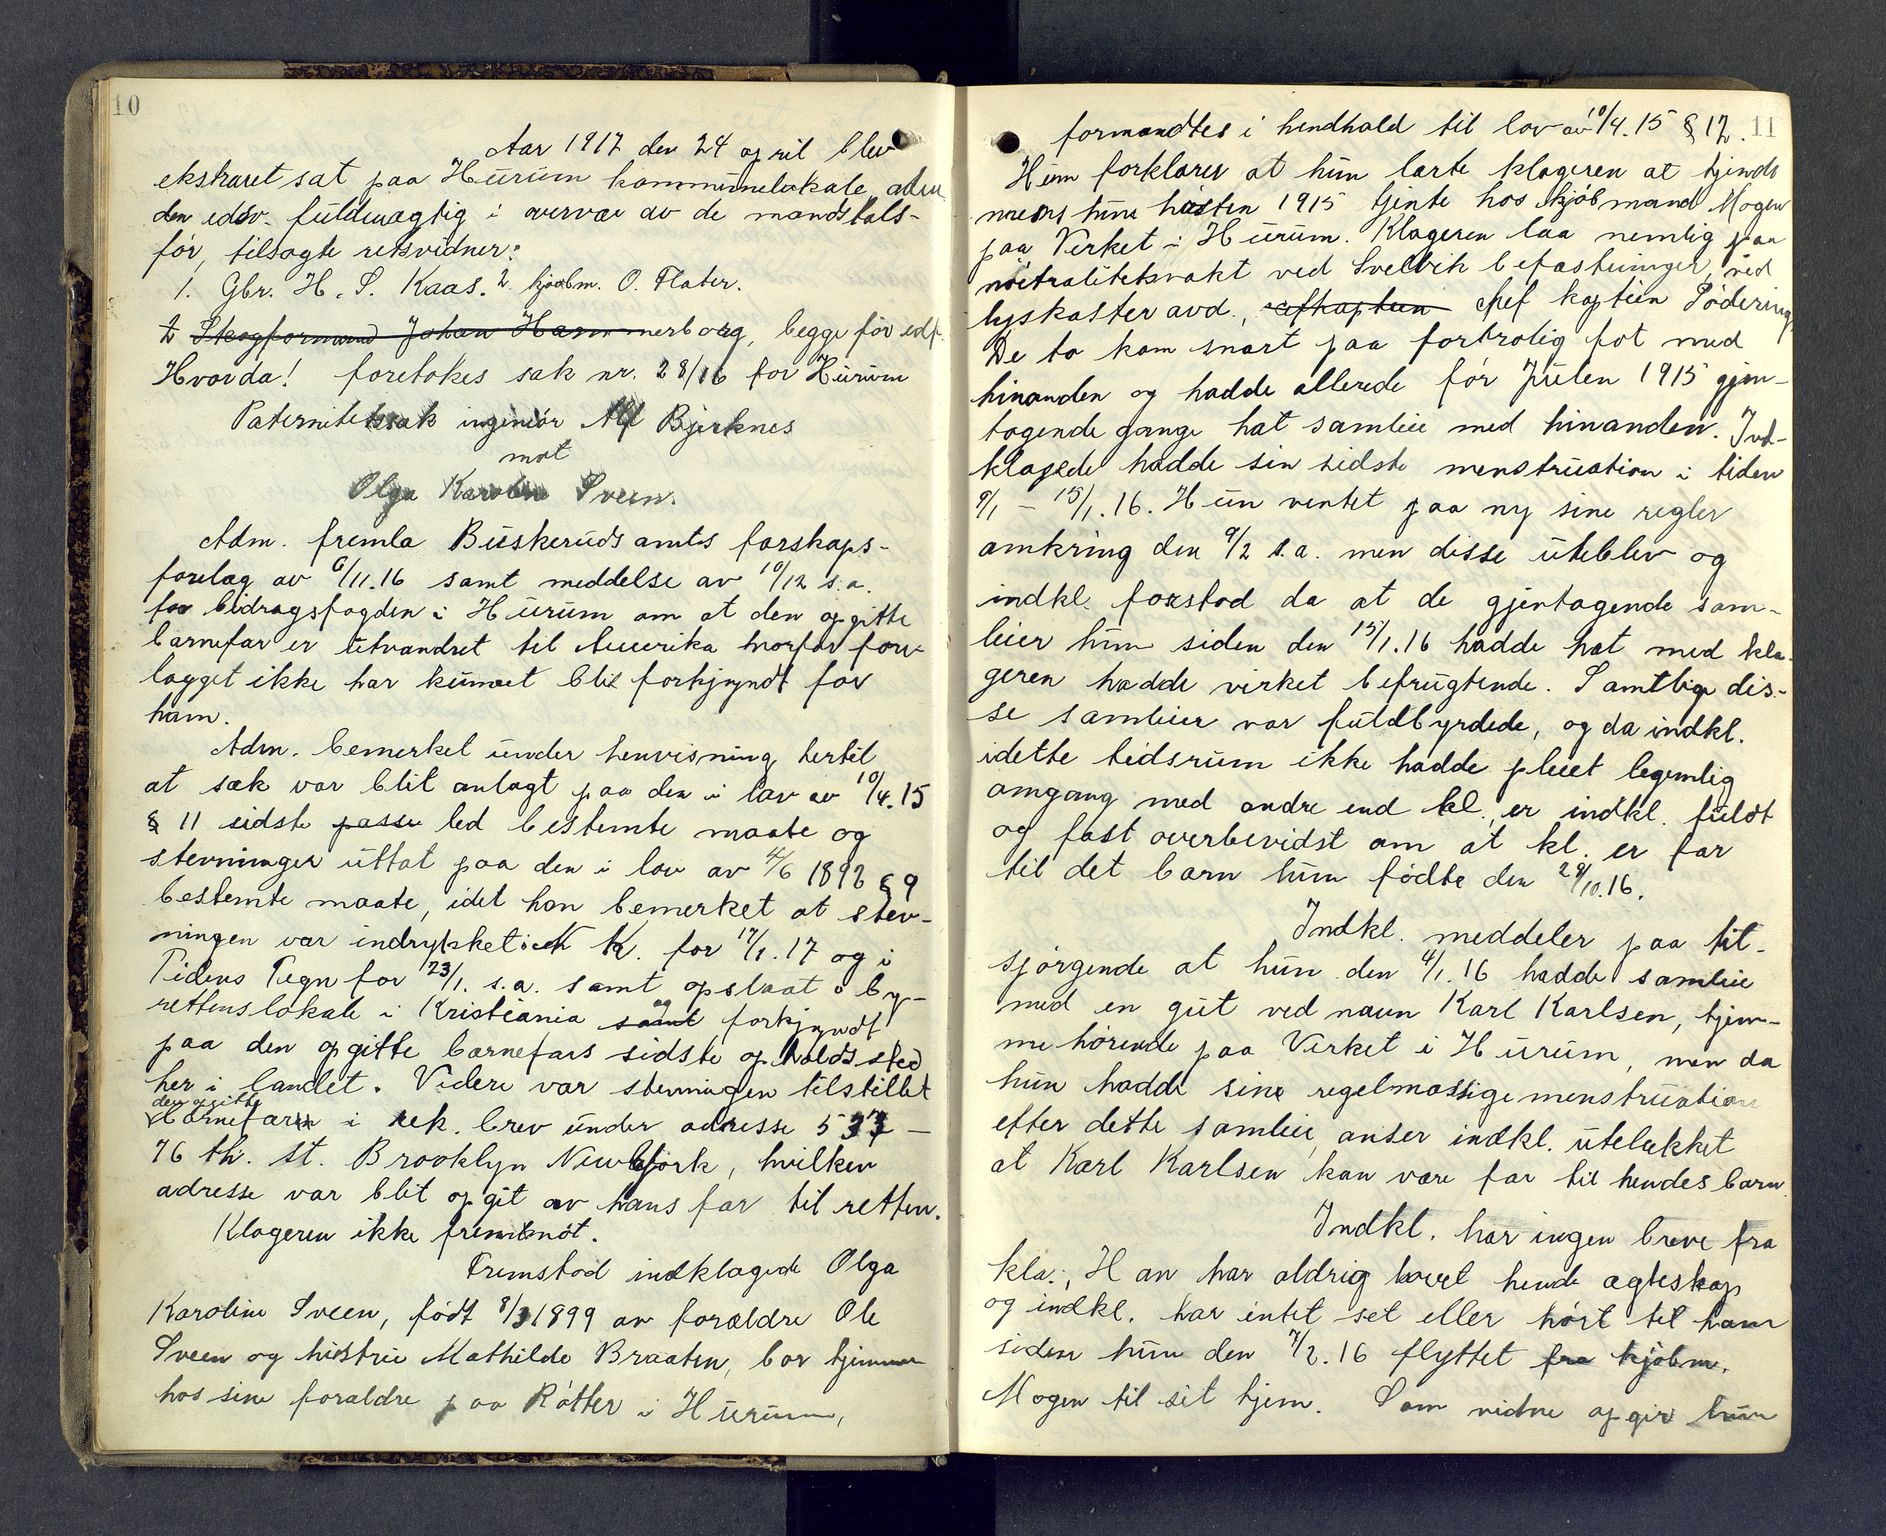 10
Aar 1917 den 24 april blev
ekstraret sat paa Hurum kommunelokale, adm
den edsv. fuldmægtig i overvær av de mandstals-
før, tilsagte retsvidner:
1. Gbr. H. S. Kaas. 2. kjøbm. O. Flater.
2 Skogformand Johan Hammerborg, begge før edf.
Hvorda! foretokes sak nr. 28/16 for Hurum
Paternitetssak ingeniør Alf Bjerknes
mot
Olga Karoline Sveen.
Adm. fremla Buskeruds amts farskaps-
forelæg av 6/11.16 samt meddelse av 10/12 s.a.
fra bidragsfogden i Hurum om at den opgitte
barnefar er utvandret til Amerika hvorfor fore-
lægget ikke har kunnet blit forkyndt for
ham.
Adm. bemerket under henvisning hertil
at sak var blit anlagt paa den i lov av 10/4.15
§ 11 sidste passu led bestemte maate og
stevninger uttat paa den i lov av 4/6 1892 § 9
bestemte maate, idet han bemerket at stev-
ningen var indrykket i N. K. for 17/1.17 og i
Tidens Tegn for 23/1. s.a. samt opslaat i by-
rettens lokale i Kristiania samt og forkyndt
paa den opgitte barnefars sidste opholdssted
her i landet. Videre var stevningen tilstillet
den opgitte
barnefar i rek. brev under adresse 537 –
76 th. st. Brooklyn New York, hvilken
adresse var blit opgit av hans far til retten.
Klageren ikke fremmøt.
Fremstod indklagede Olga
Karoline Sveen, født 8/3 1899 av forældre Ole
Sveen og hustru Mathilde Braaten, bor hjemme
hos sine foraldre paa Røtter i Hurum,
11
formandtes i hendhold til lov av 10/4.15 § 12.
Hun forklarer at hun lærte klageren at kjende
mens hun høsten 1915 tjente hos kjøbmand Mogen
paa Verket i Hurum. Klageren laa nemlig paa
nøitralitetsvakt ved Svelvik befæstninger, ved
lyskasteravd., chef kaptein Sødering.
De to kom snart paa fortrolig fot med
hinanden og hadde allerede før Julen 1915 gjen-
tagende gange hat samleie med hinanden. Ind-
klagede hadde sin sidste menstruation i tiden
9/1 – 15/1.16. Hun ventet paa ny sine regler
omkring den 9/2 s.a. men disse uteblev og
indkl. forstod da at de gjentagende sam-
leier hun siden den 15/1.16 hadde hat med kla-
geren hadde virket befrugtende. Samtlige dis-
se samleier var fuldbyrdede, og da indkl.
idette tidsrum ikke hadde pleiet legemlig
omgang med andre end kl., er indkl. fuldt
og fast overbevidst om at kl. er far
til det barn hun fødte den 28/10.16.
Indkl. meddeler paa til-
sjørgende at hun den 4/1.16 hadde samleie
med en gut ved navn Karl Karlsen, hjem-
me hørende paa Verket i Hurum, men da
hun hadde sine regelmæssige menstruation
efter dette samleie, anser indkl. utelukket
at Karl Karlsen kan være far til hendes barn.
Indkl. har ingen breve fra
kla., Han har aldrig lovet hende ægteskap
og indkl. har intet set eller hørt til ham
siden hun den 7/2.16 flyttet fra kjøbm.
Mogen til sit hjem. Som vidne opgir hun